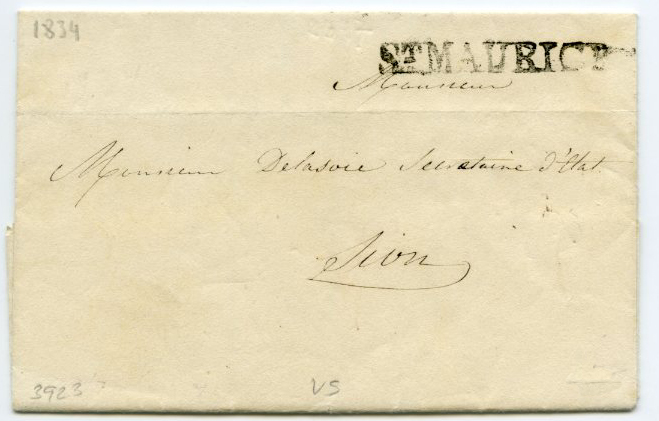 1834
ST MAURICE
Monsieur
Monsieur Delasoie Secretaire d'Etat
Sion
3923
VS